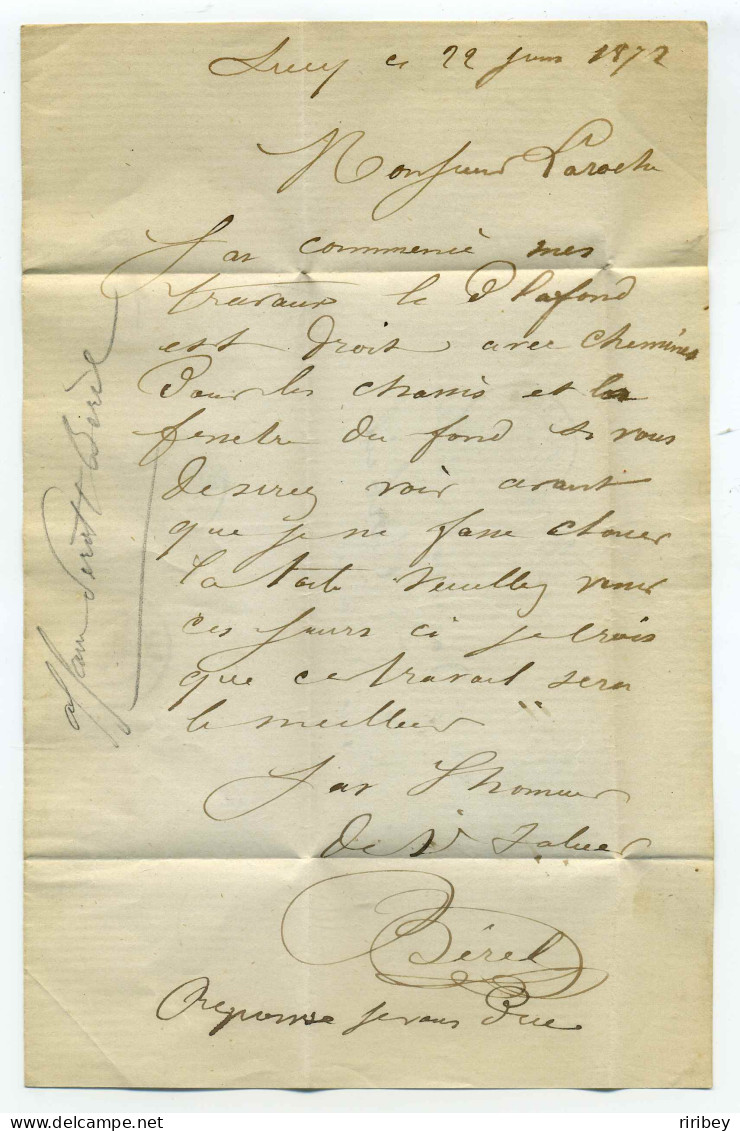 ce 22 juin 1872
Monsieur Laroche
J'ai commencé mes
travaux le Plafond
est Droit avec cheminée
Pour les chassis et la
fenetre du fond si vous
desirez voir avant
que je ne fasse clouer
la toile veuillez venir
ces jours ci je crois
que ce travail sera
le meilleur
J'ai l'honneur
de Vs saluer
Bérel
Reponse je vous Prie
affaire Bérèl
ririBey